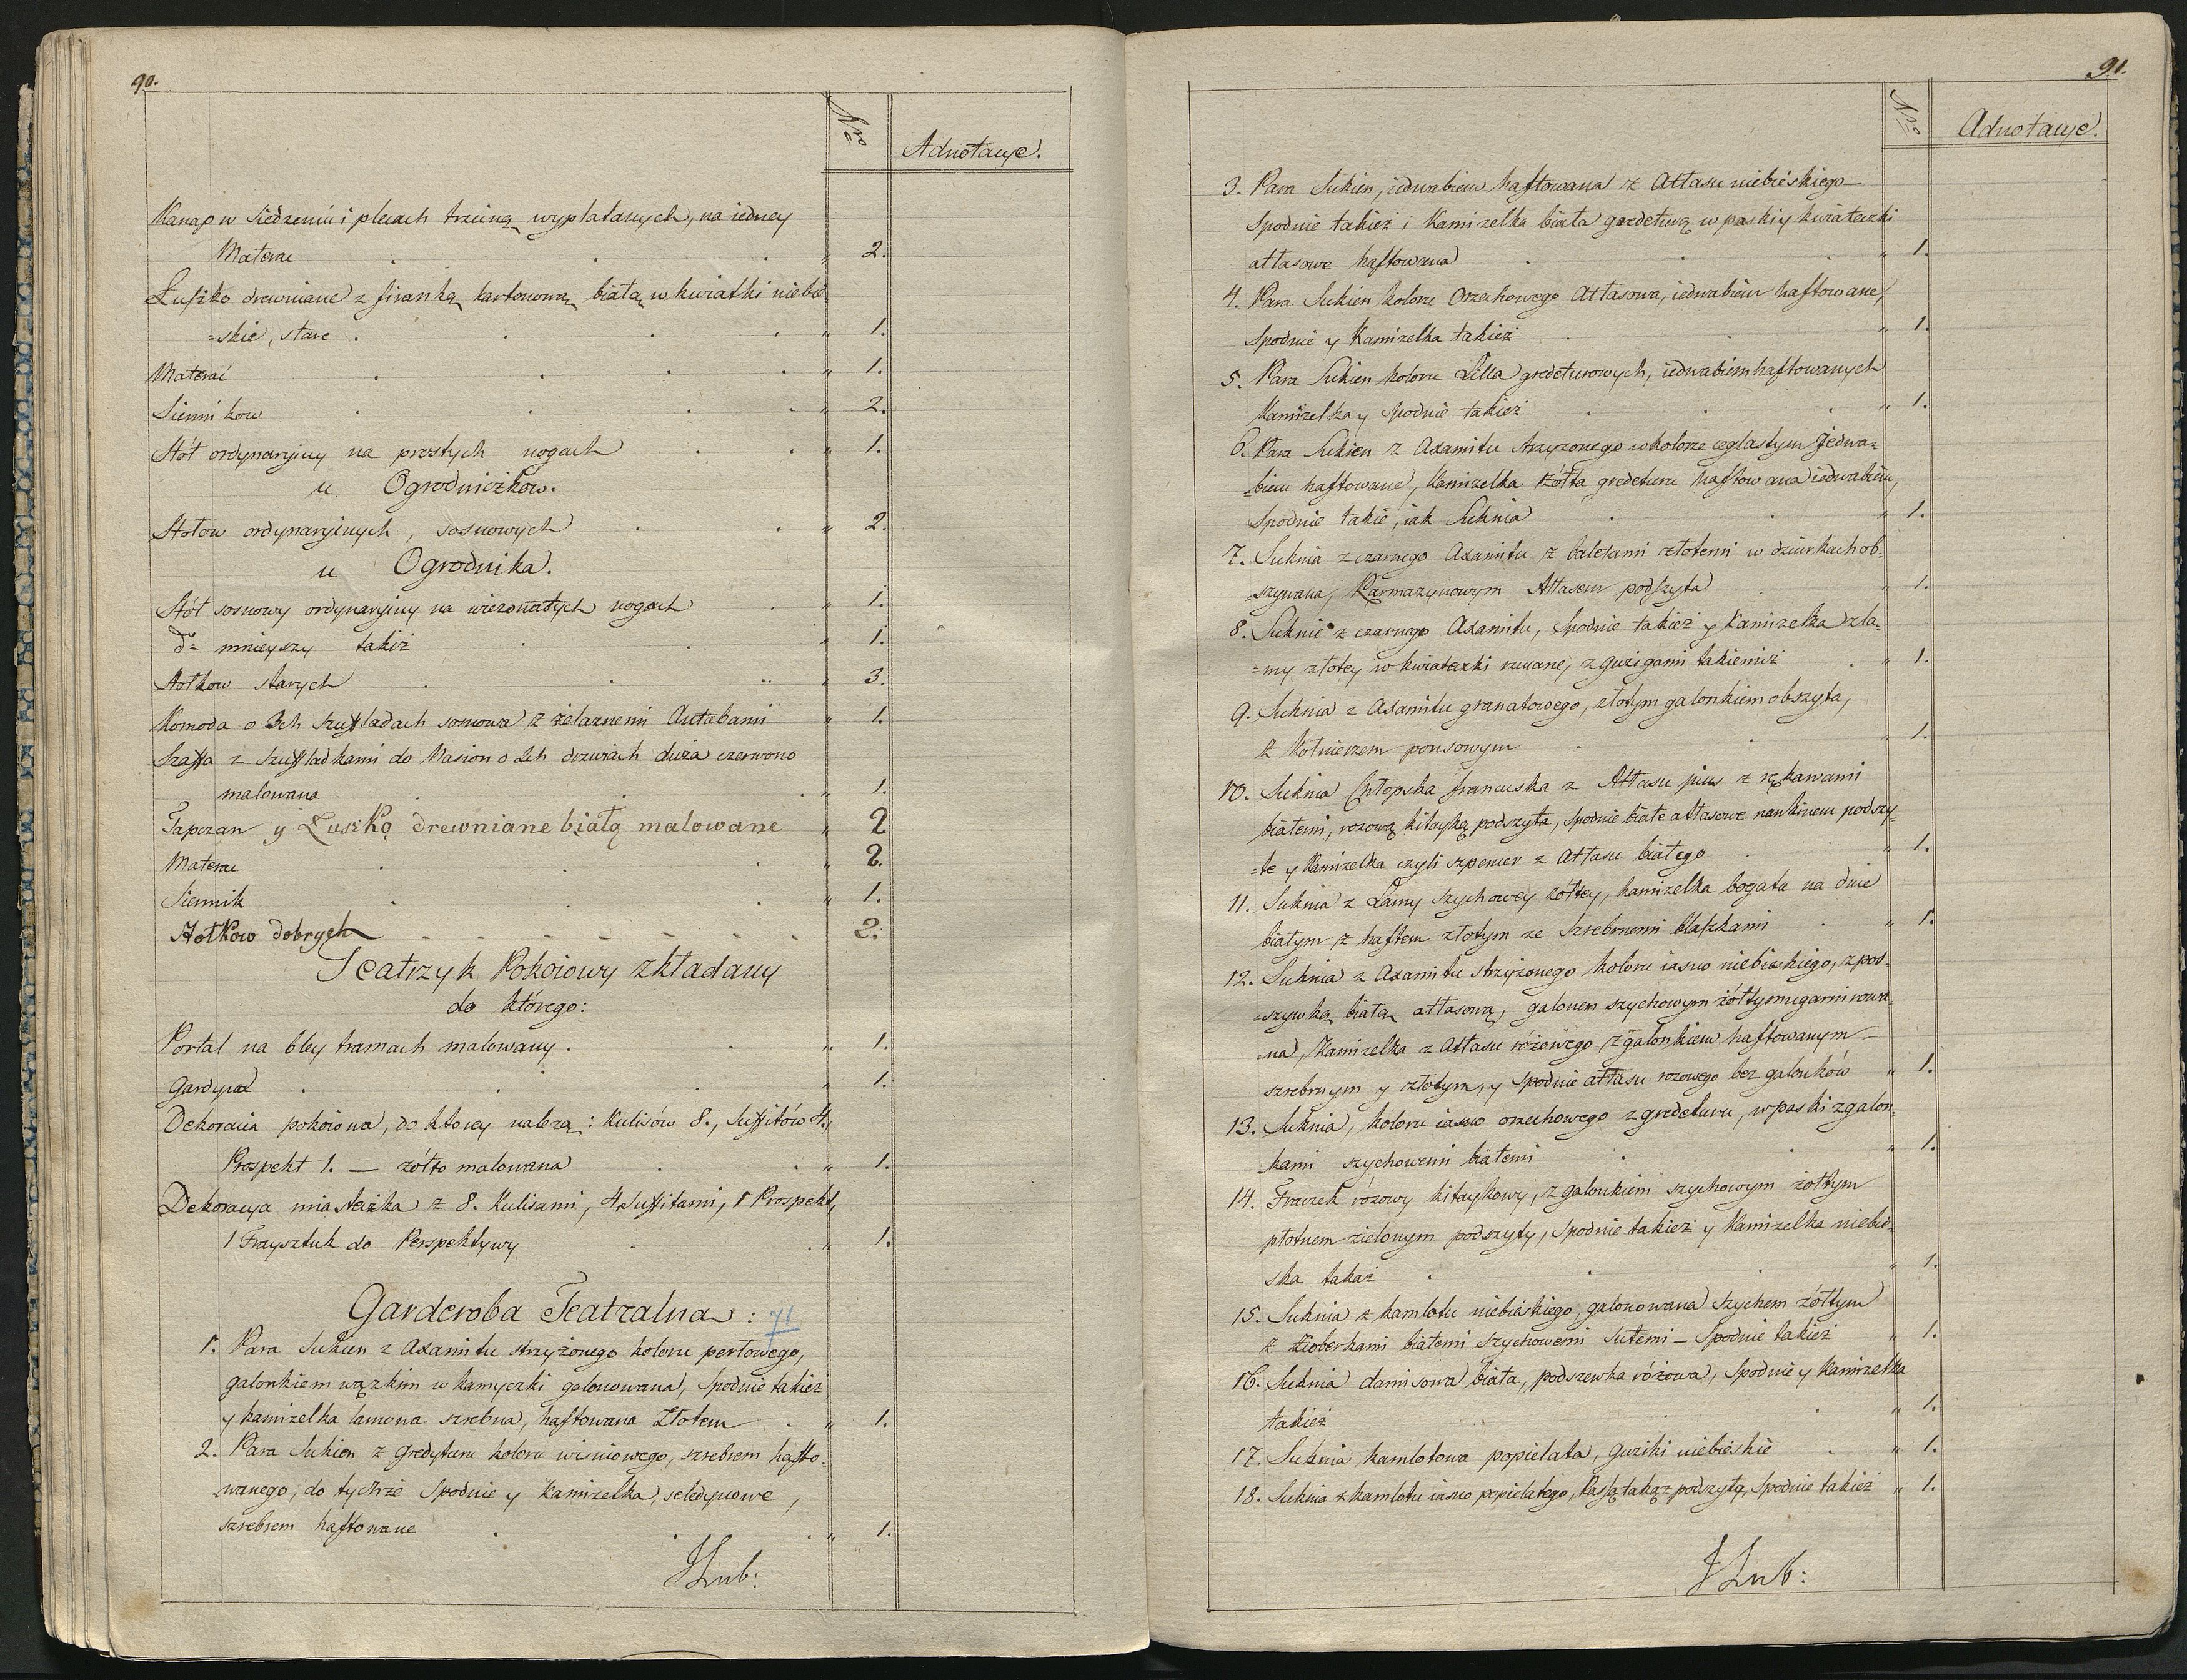 90.
Nro
Adnotacye.
Kanap w siedzeniu i plecach trzciną wyplatanych, na iedney
Materac 2.
Łuszko drewniane z firanką kartonową białą w kwiatki niebie=
=skie, stare 1.
Materac 1.
Siennikow 2.
Stół ordynaryiny na prostych nogach 1.
u Ogrodniczkow.
Stołow ordynaryinych, sosnowych 2.
u Ogrodnika.
Stół sosnowy ordynaryiny na nogach 1.
do mnieyszy takiż 1.
Stołkow starych 3.
Komoda o 3ch szufladach sosnowa z żelaznemi Antabami 1.
Szaffa z szuffladkami do Nasion o 2ch drzwiach duża czerwono
malowana 1.
Tapczan y Łuszką drewniane białą malowane 2
Materac 2.
Siennik 1.
Stołkow dobrych 2.
Teatrzyk Pokoiowy zkładany
do którego:
Portal na 6ley tramach malowany. 1.
Gardyna 1.
Dekoracia pokoiowa, do ktorey należą: Kulisów 8., Suffitów 4.,
Prospekt 1. — żółto malowana 1.
Dekoracya miasteczka z 8. Kulisami, 4 Suffitami, 1 Prospekt,
1 Fraysztuk do Perspektywy 1.
Garderoba Teatralna: 71
1. Para Sukien z Axamitu strzyżonego koloru perłowego,
galonkiem wązkim w kamyczki galonowana, Spodnie takież
y kamizelka lamowa srebrna, haftowana złotem 1.
2. Para Sukien z Gredyturu koloru wisniowego, srebrem hafto=
=wanego, do tychże Spodnie y Kamizelka, seledynowe,
srebrem haftowane 1.
JLub:
91.
Nro
Adnotacye.
3. Para Sukien, iedwabiem haftowana z Atłasu niebieskiego—
Spodnie takież i Kamizelka biała gredeturą w paski y kwiateczki
atłasowe haftowana 1.
4. Para Sukien koloru Orzechowego Atłasowa, iedwabiem haftowane,
Spodnie y Kamizelka takież 1.
5. Para Sukien koloru Lilla gredeturowych, iedwabiem haftowanych
Kamizelka y Spodnie takież 1.
6. Para Sukien z Axamitu strzyzonego w kolorze ceglastym Jedwa=
=biem haftowane, kamizelka żółta gredeturu haftowana iedwabiem,
Spodnie takie, iak Suknia 1.
7. Suknia z czarnego Axamitu z baletami złotemi w dziurkach ob=
=szywana, Karmazynowym Atłasem podszyta 1.
8. Suknie z czarnego Axamitu, Spodnie takież y Kamizelka z la=
=my złotey w kwiateczki rzucane, z guzigami takiemiż 1.
9. Suknia z Axamitu granatowego, złotym galonkiem obszyta,
z Kołnierzem ponsowym 1.
10. Suknia Chłopska francuska z Atłasu pius z rękawami
białemi, rozową kitayką podszyta, spodnie białe atłasowe nankinem podszy=
=te y Kamizelka czyli szpencer z Atłasu białego 1.
11. Suknia z Lamy szychowey żółtey, kamizelka bogata na dnie
białym z haftem złotym ze srebrnemi blaszkami 1.
12. Suknia z Axamitu strzyżonego koloru iasno niebieskiego, z pod=
=szywką białą atłasową, galonem szychowym żółtym ugarnirowa=
=na, Kamizelka z Atłasu różowego z galonkiem haftowanym—
srebrnym y złotym, y Spodnie atłasu rozowego bez galonków 1.
13. Suknia, koloru iasno orzechowego z gredeturu, w paski z galon=
kami szychowemi białemi 1.
14. Fraczek różowy kitaykowy, z galonkiem szychowym żółtym
płotnem zielonym podszyty, Spodnie takież y Kamizelka niebie=
ska takaż 1.
15. Suknia z kamlotu niebieskiego, galonowana szychem żółtym
z białemi szychowemi sutemi — Spodnie takież 1.
16. Suknia damisowa biała, podszewka różowa, Spodnie y Kamizelka
takież 1.
17. Suknia kamlotowa popielata, guziki niebieskie 1.
18. Suknia z kamlotu iasno popielatego, Rasą takąż podszyta, Spodnie takież 1.
JLub: